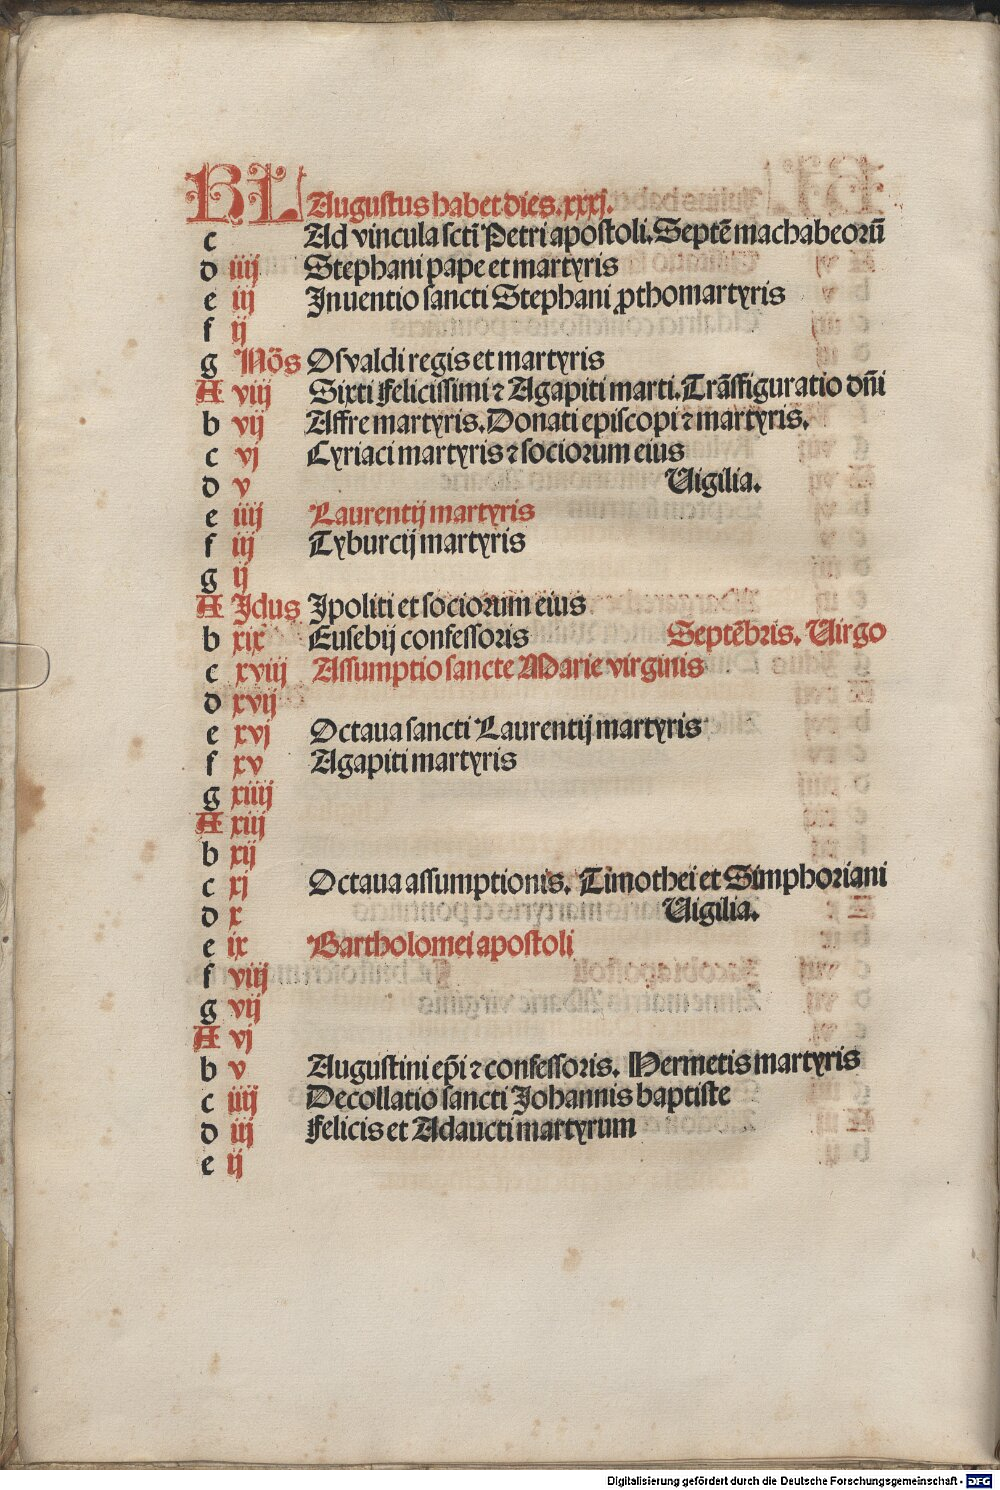 KL Augustus habet dies.xxxj.
c Ad vincula scti Petri apostoli.Septē machabeorū
d iiij Stephani pape et martyris
e iij Inuentio sancti Stephani ꝓthomartyris
f ij
g Nōs Osvaldi regis et martyris
A viij Sixti felicissimi ⁊ Agapiti marti.Trāsfiguratio dn̄i
b vij Affre martyris.Donati episcopi ⁊ martyris.
c vj Cyriaci martyris ⁊ sociorum eius
d v Uigilia.
e iiij Laurentij martyris
f iij Tyburcij martyris
g ij
A Idus Ipoliti et sociorum eius
b xix Eusebij confessoris Septēbris. Uirgo
c xviij Assumptio sancte Marie virginis
d xvij
e xvj Octaua sancti Laurentij martyris
f xv Agapiti martyris
g xiiij
A xiij
b xij
c xj Octaua assumptionis. Timothei et Simphoriani
d x Uigilia.
e ix Bartholomei apostoli
f viij
g vij
A vj
b v Augustini ep̄i ⁊ confessoris. Hermetis martyris
c iiij Decollatio sancti Johannis baptiste
d iij felicis et Adaucti martyrum
e ij
Digitalisierung gefördert durch die Deutsche Forschungsgemeinschaft - DFG